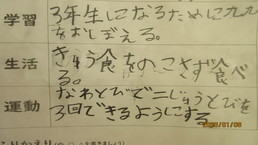 学習
3年生になるために九九
をおぼえる。
生活
きゅう食をのこさず食べ
る。
運動
なわとびで二じゅうとびを
3回できるようにする